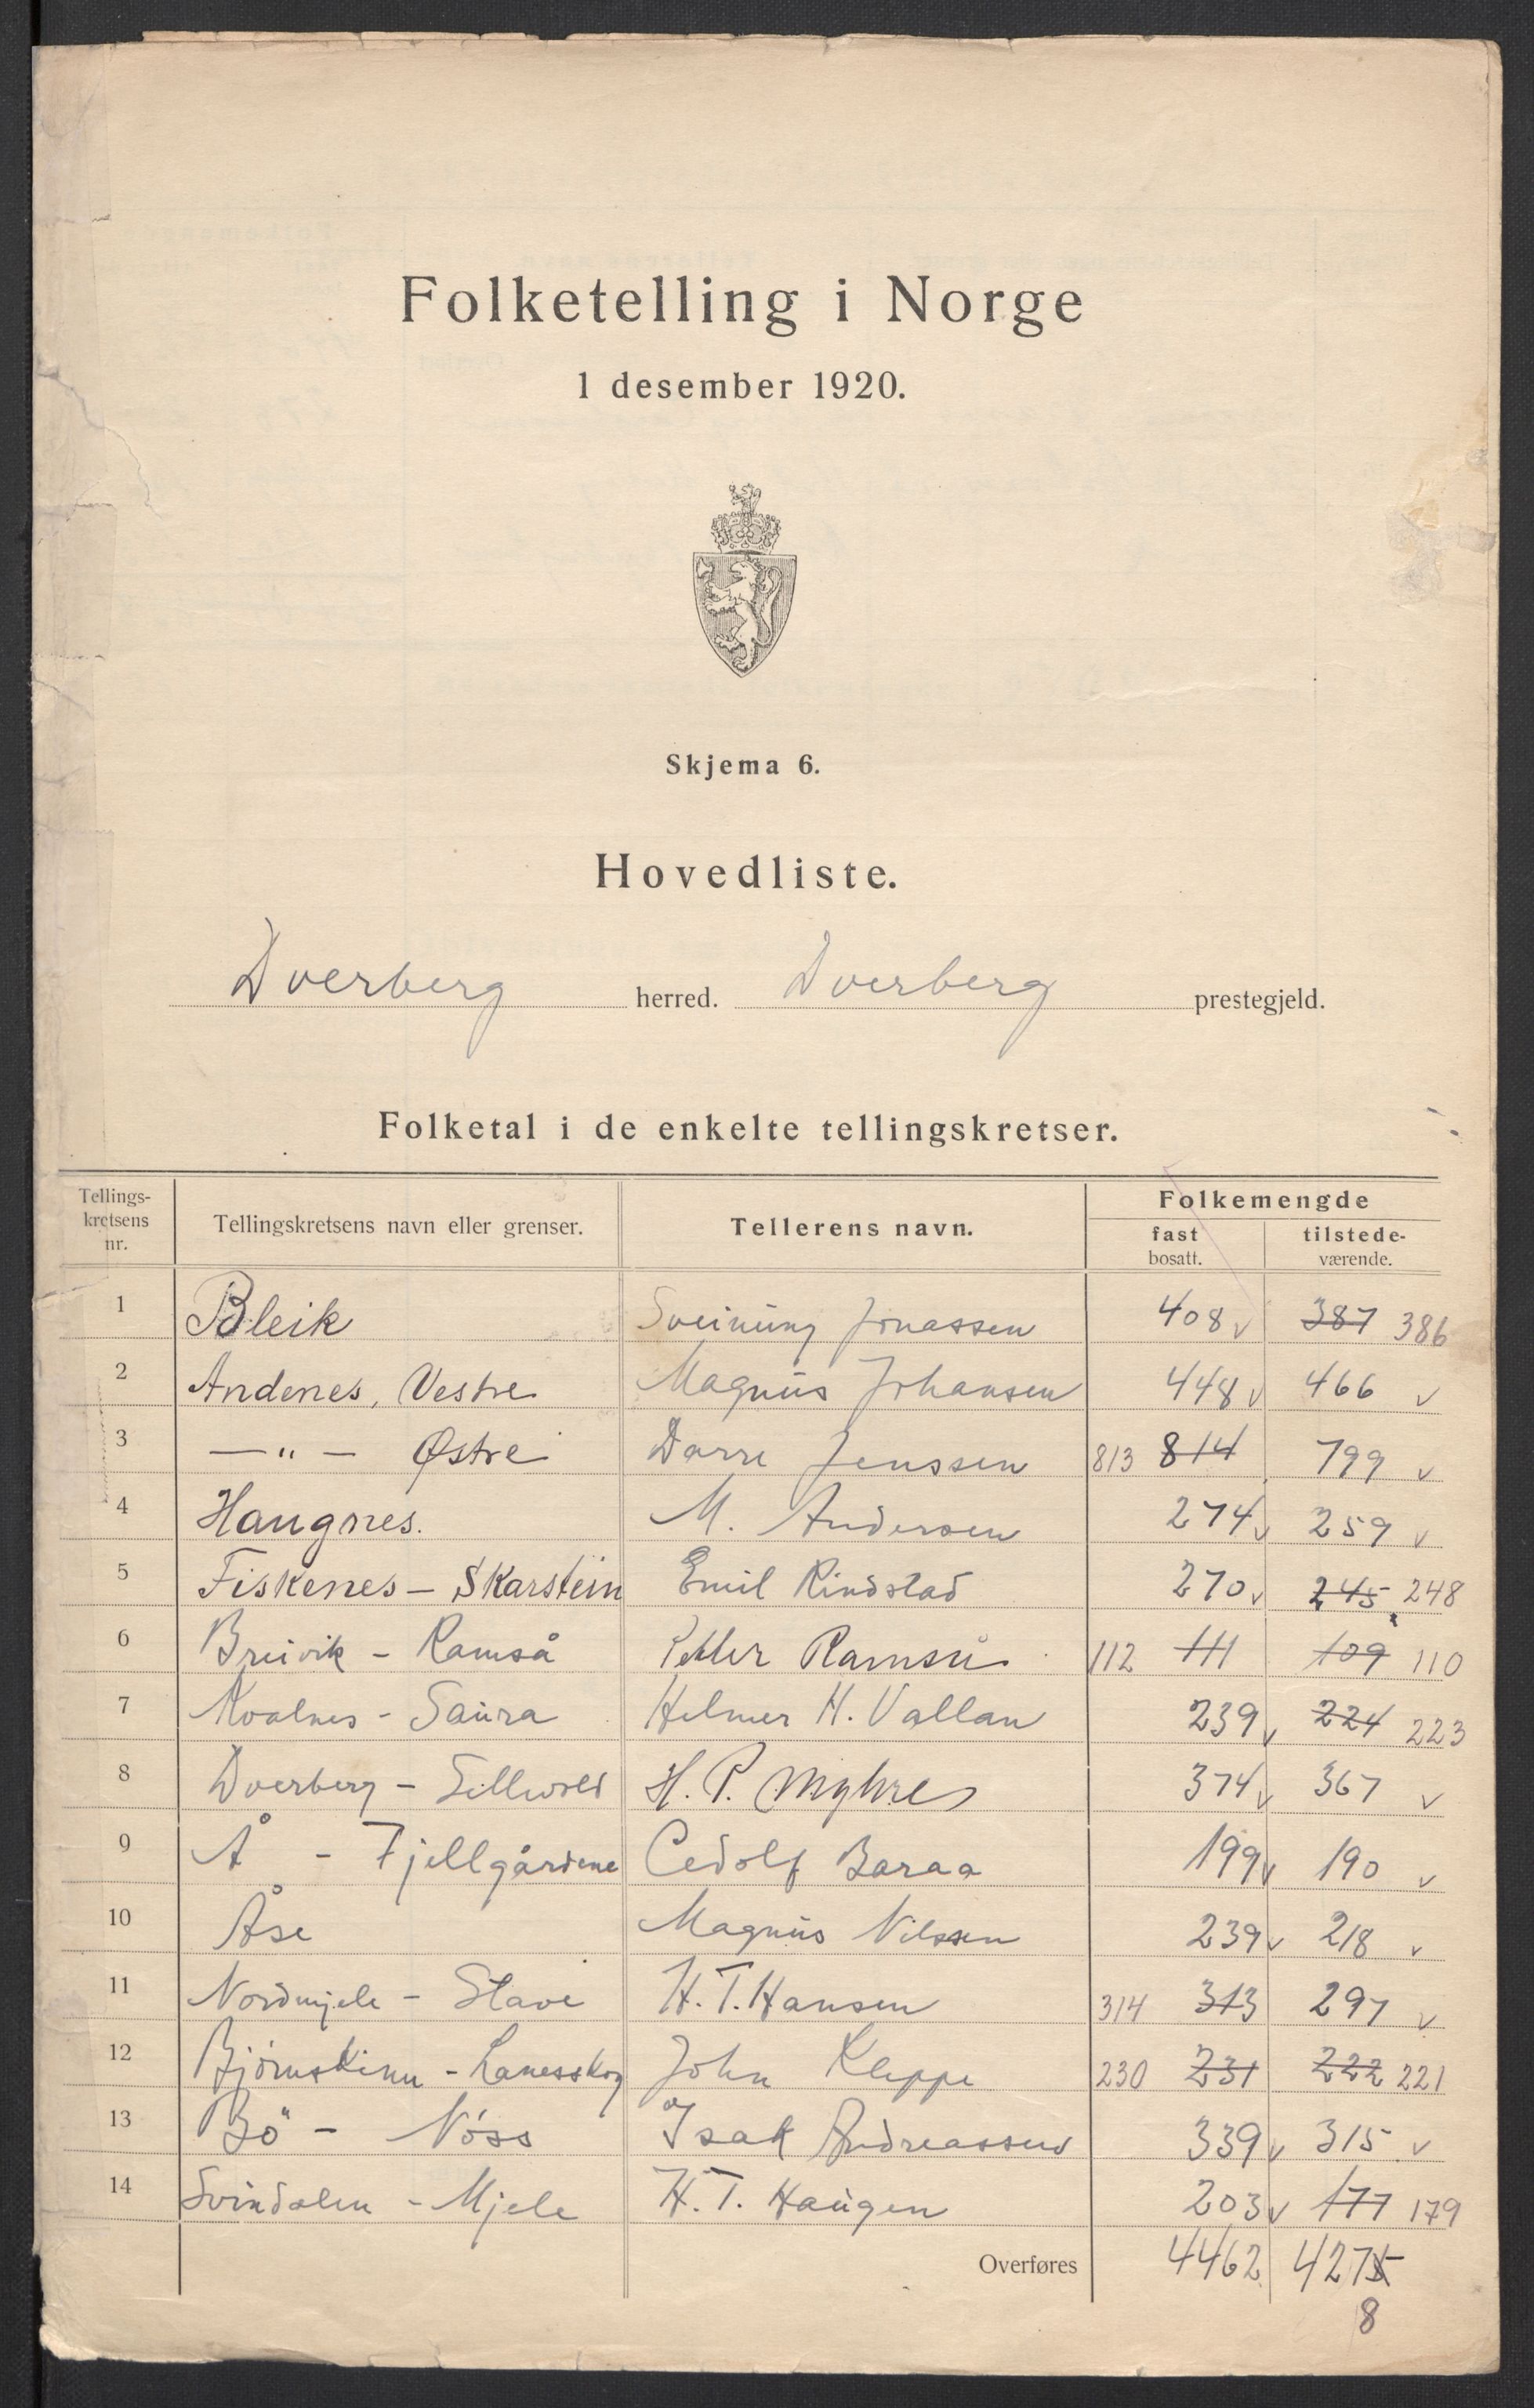 Folketelling i Norge
1 desember 1920.
Skjema 6.
Hovedliste.
Dverberg herred. Dverberg prestegjeld.
Folketal i de enkelte tellingskretser.
Tellings-kretsens nr. Tellingskretsens navn eller grenser. Tellerens navn. Folkemengde fast bosatt. tilstede-værende.
1 Bleik Sveinung Jonassen 408 v 387 386
2 Andenes, Vestre Magnus Johansen 448 v 466 v
3 — " — Østre Darre Jenssen 813 814 799 v
4 Haugnes. M. Andersen 274 v 259 v
5 Fiskenes - Skarstein Emil Rindstad 270 v 245 248
6 Breivik - Ramså Petter Ramså 112 111 109 110
7 Kvalnes - Saura Helmer H. Vallan 239 v 224 223
8 Dverberg - H. P. Myhre 374 v 367 v
9 Å - Fjellgårdene Cedolf Baraa 199 v 190 v
10 Åse Magnus Nilssen 239 v 218 v
11 Nordmjele - Stave H. T. Hansen 314 313 297 v
12 Björnskinn - Lanesskog John Kleppe 230 231 222 221
13 Bö - Nöss Isak Andreassen 339 v 315 v
14 Svindalen - Mjele H. T. Haugen 203 v 177 179
Overføres 4462 4275
8